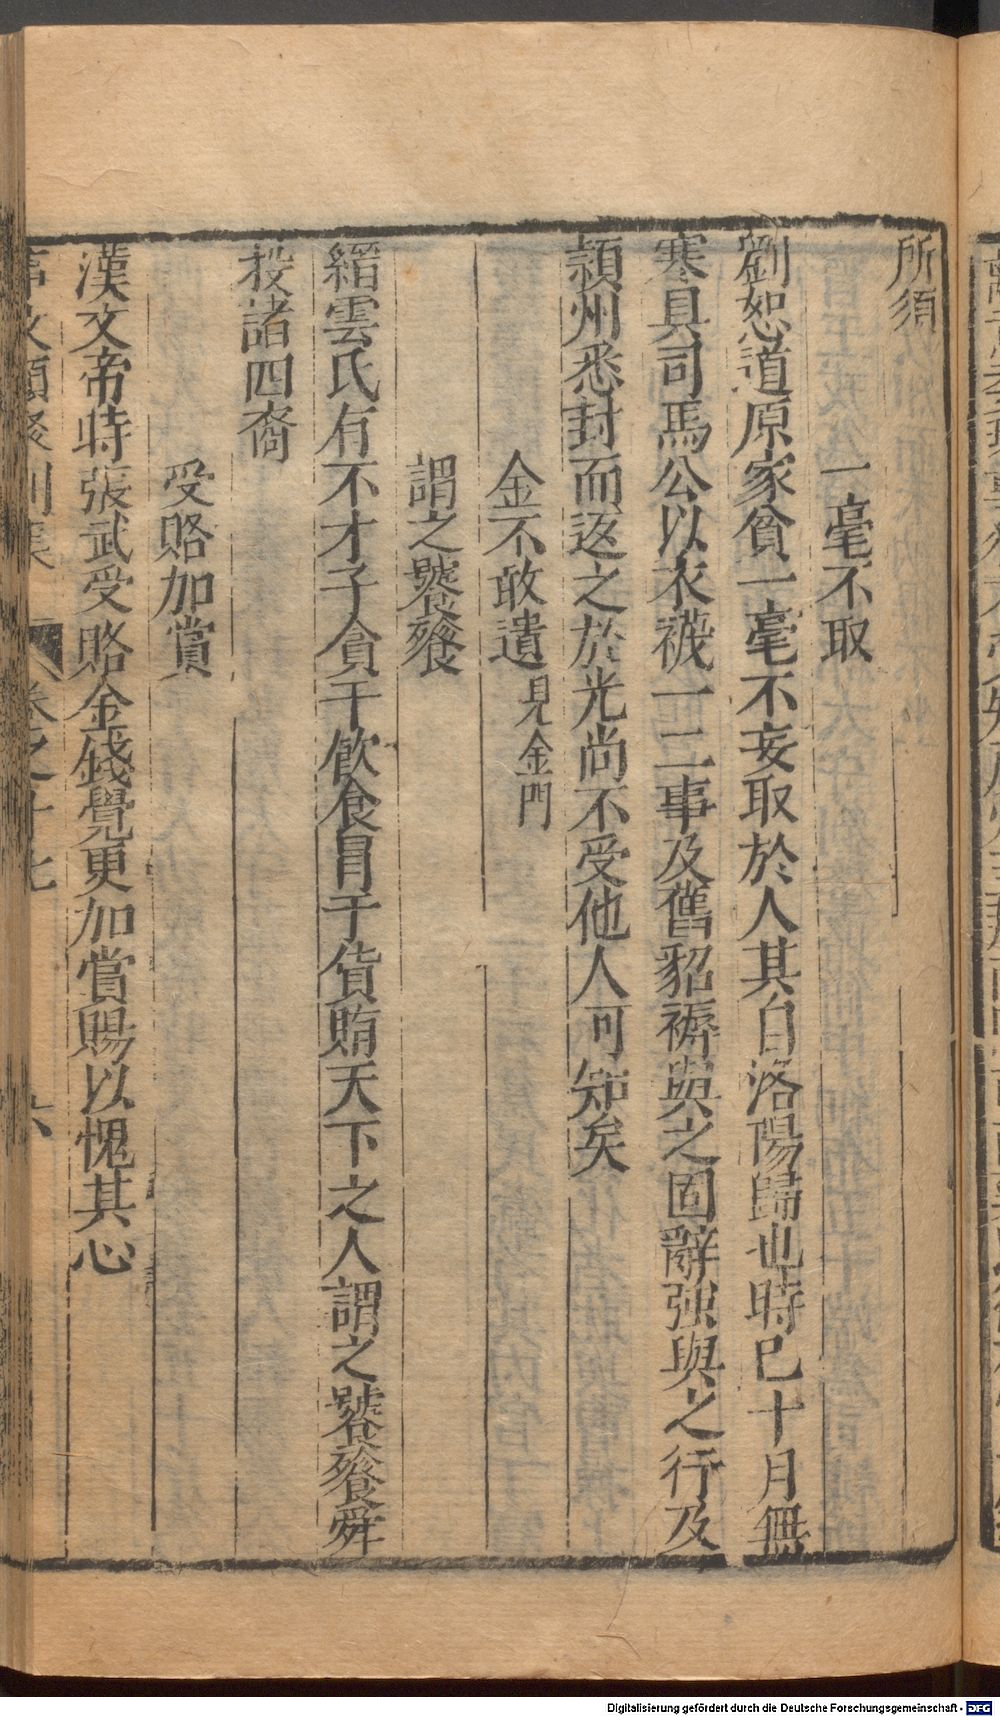 所須
一毫不取
劉恕道原家貧一毫不妄取於人其自洛陽歸也時已十月無
寒具司馬公以衣襪一二事及舊貂褥與之固辭強與之行及
頴州悉封而返之於光尚不受他人可知矣
金不敢遺見金門
謂之饕餮
縉雲氏有不才子貪于飲食冒于貨賄天下之人謂之饕餮舜
投諸四裔
受賂加賞
漢文帝時張武受賂金錢覺更加賞賜以愧其心
事文類聚別集 卷之十七 六
Digitalisierung gefördert durch die Deutsche Forschungsgemeinschaft - DFG